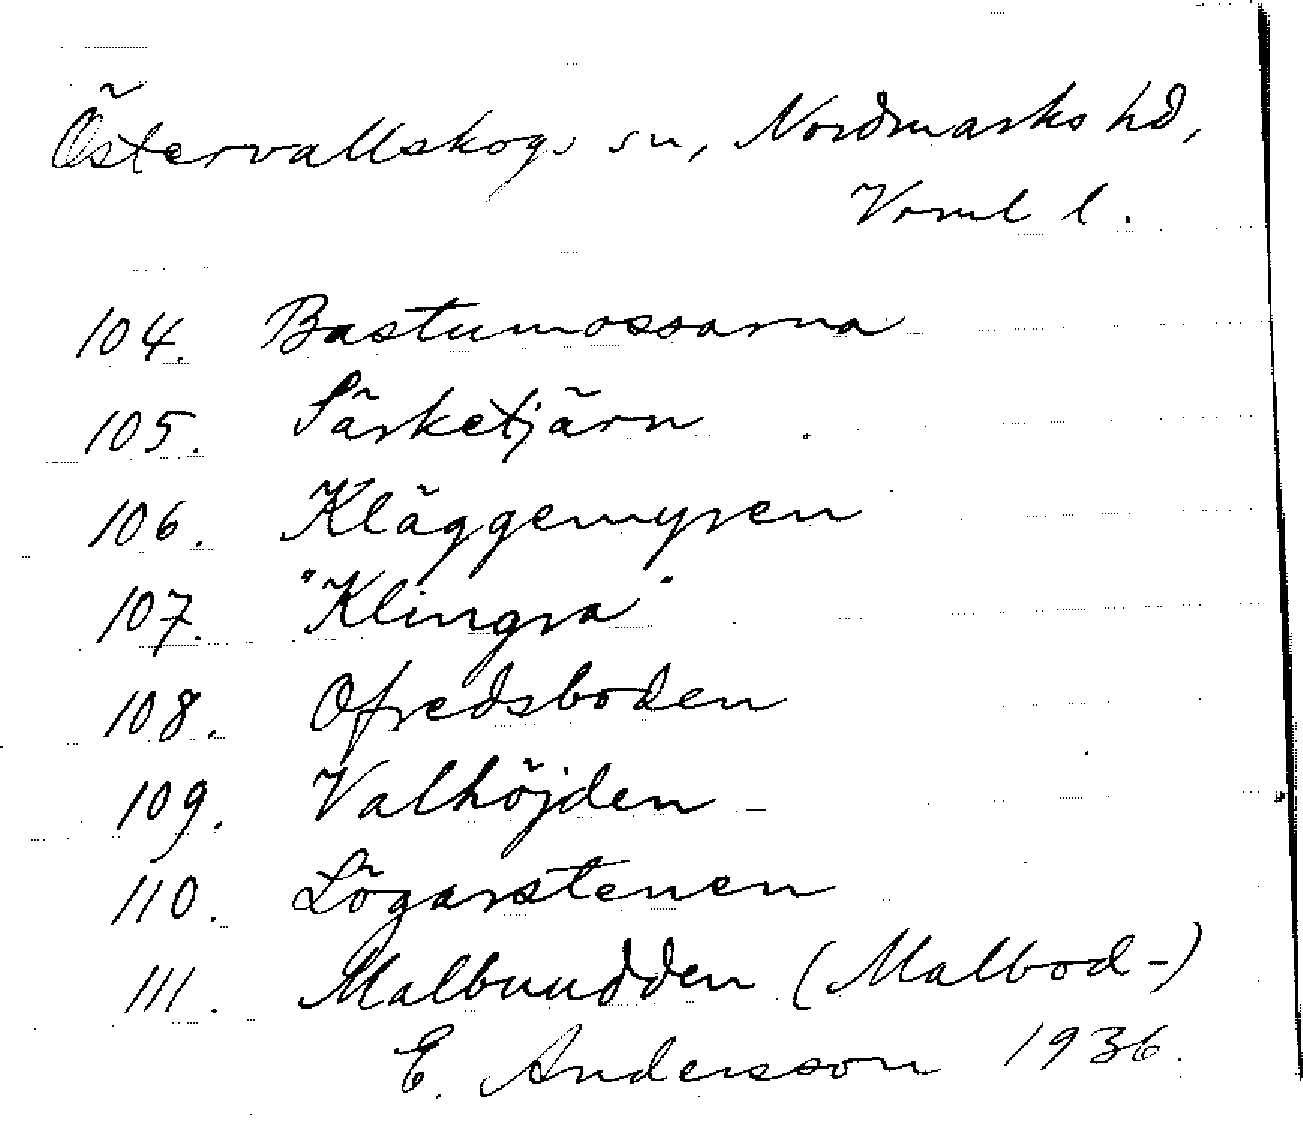 Östervallskogs sn, Nordmarks hd,
Verml l.
104. Bastumossarna
105. Särketjärn
106. Kläggemyren
107. "Klingra"
108. Ofredsboden
109. Valhöjden
110. Lögarstenen
111. Malbuudden (Malbod-)
E. Andersson 1936.